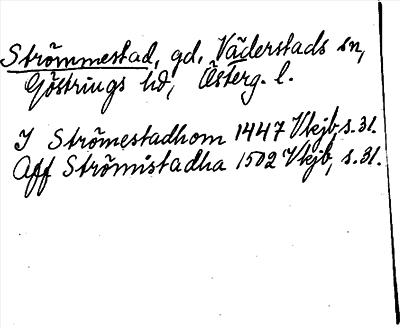 Strömmestad, gd, Väderstads sn,
Göstrings hd, Österg. l.
I Strömestadhom 1447 Vkjb, s. 31.
Aff Strömistadha 1502 Vkjb, s. 31.